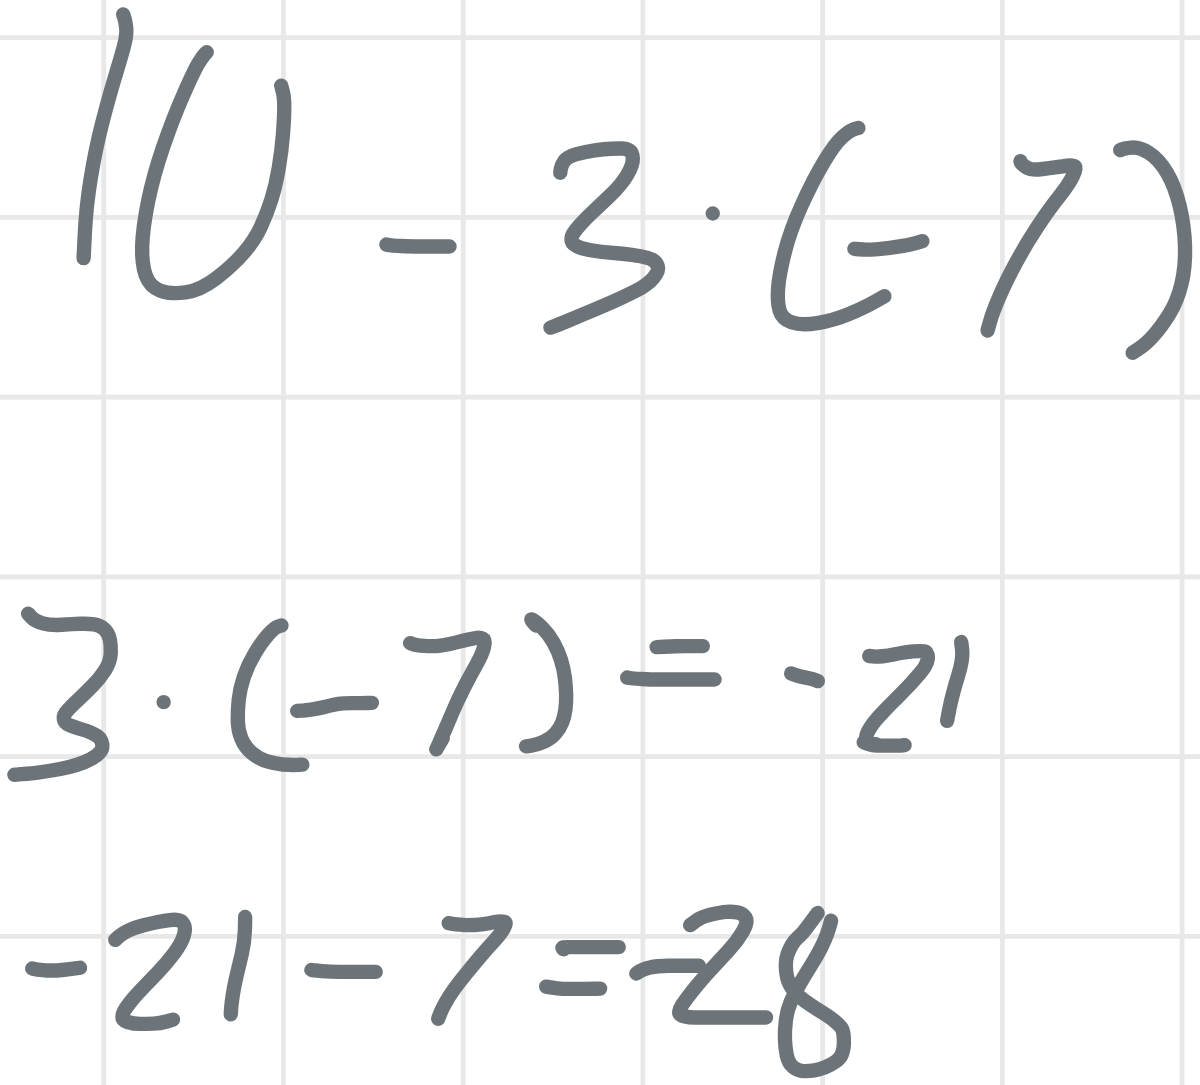 10 - 3 · (-7)
3 · (-7) = -21
-21 - 7 = -28